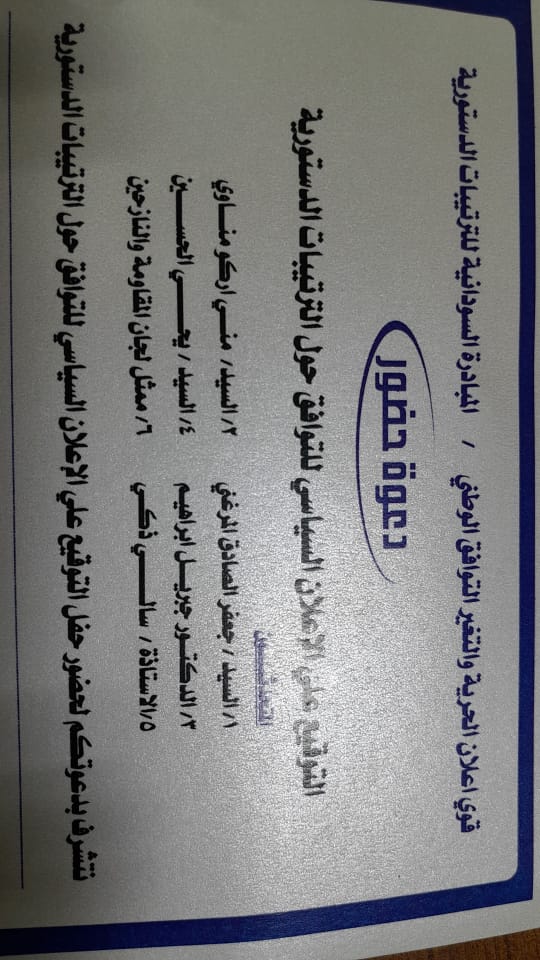 قوي اعلان الحرية والتغير التوافق الوطني / المبادرة السودانية للترتيبات الدستورية
دعوة حضور
التوقيع علي الإعلان السياسي للتوافق حول الترتيبات الدستورية
المتحدثـــــون
١/ السيد / جعفر الصادق المرغني ٢/ السيد/ منــي اركو منــاوي
٣/ الدكتـور جبريــل ابراهيم ٤/ السيد / يحـــي الحســـين
٥/الاستاذة / سالـــي ذكــي ٦/ ممثل لجان المقاومة والنازحين
نتشرف بدعوتكم لحضور حفل التوقيع علي الإعلان السياسي للتوافق حول الترتيبات الدستورية